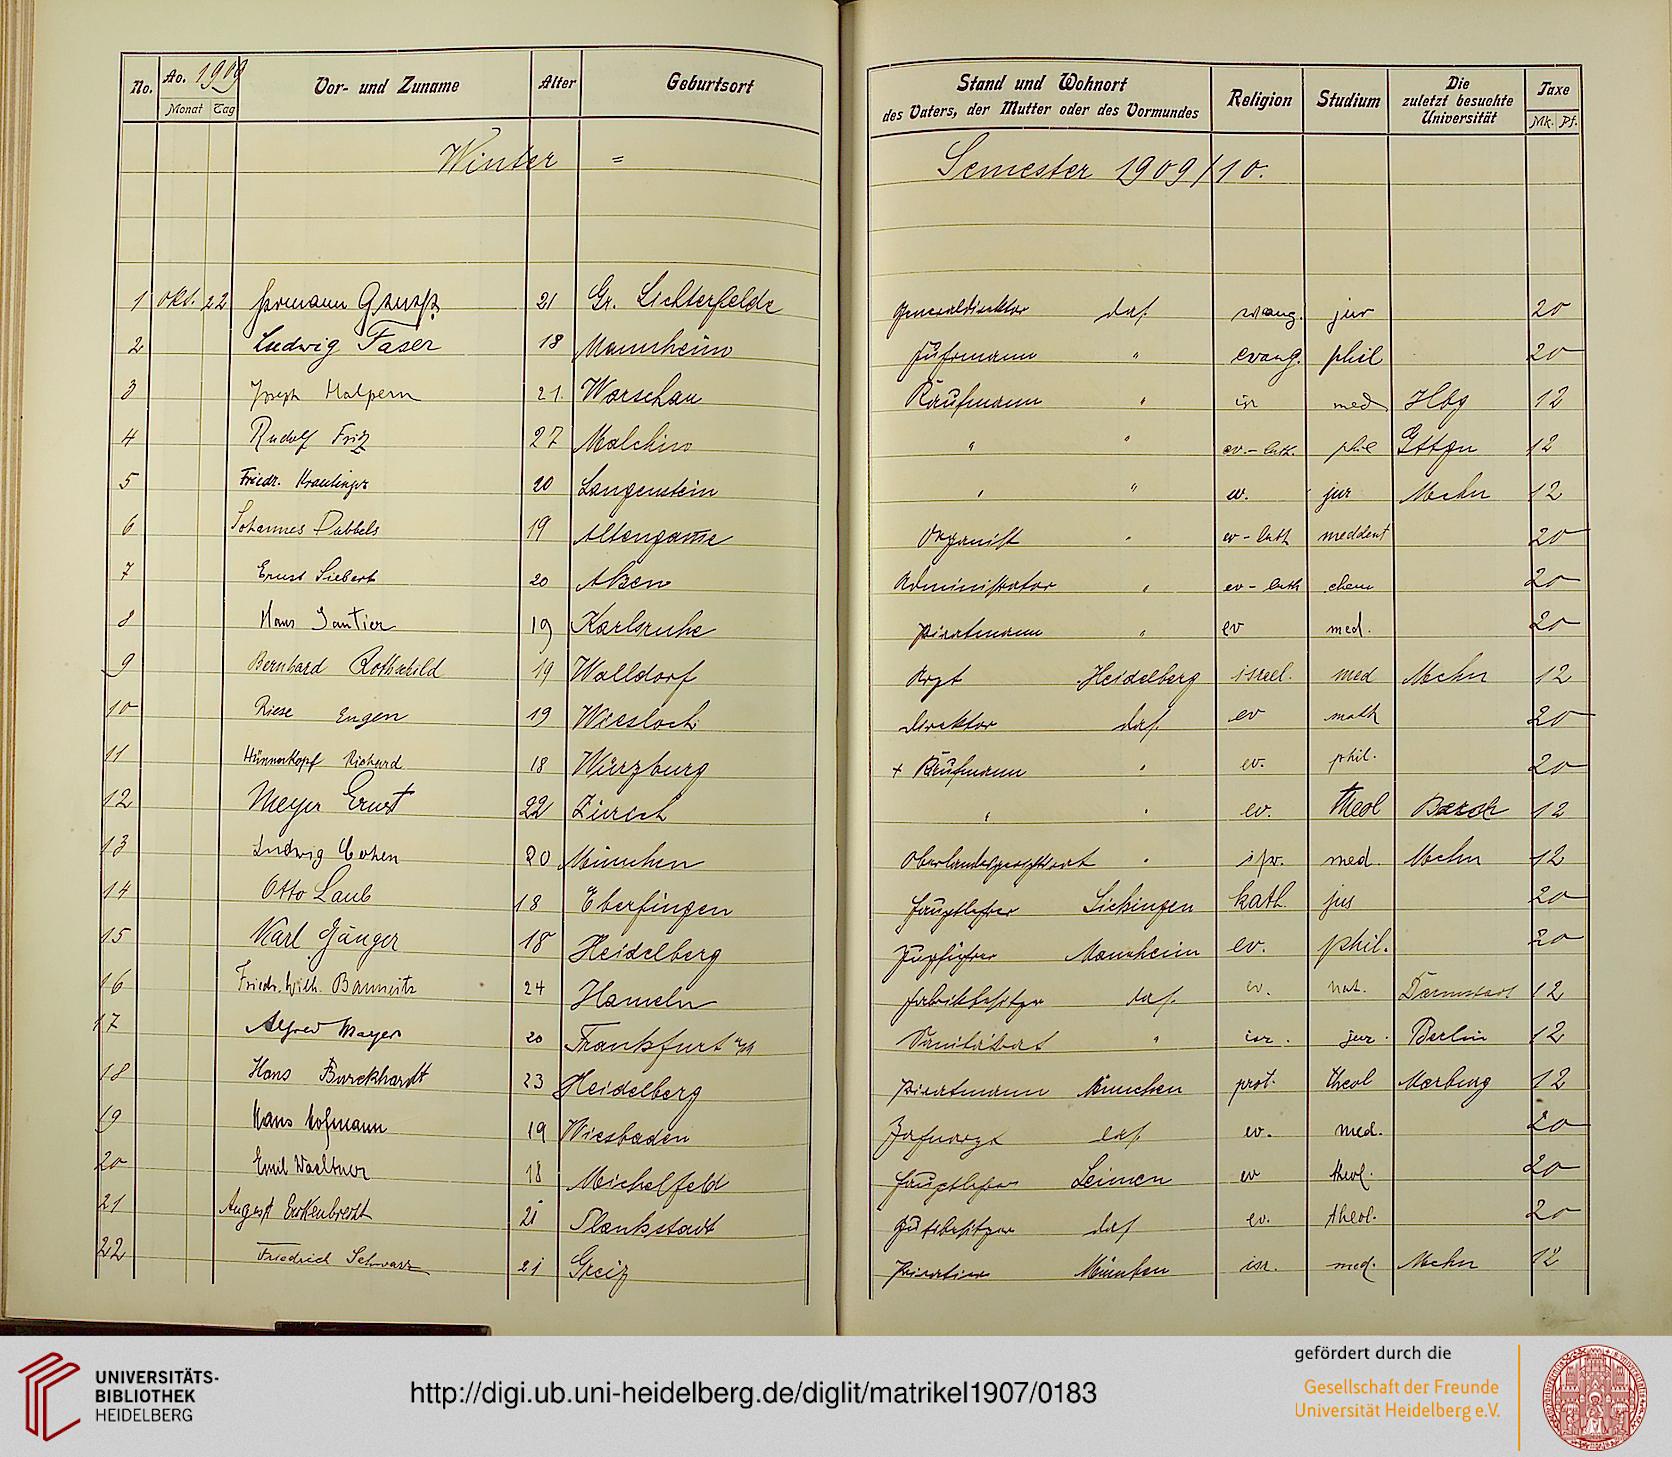 No. Ao. 1909 Vor- und Zuname Alter Geburtsort Stand und Wohnort Religion Studium Die Taxe
Monat Tag des Vaters, der Mutter oder des Vormundes zuletzt besuchte Mk. Pf.
Universität
Winter = Semester 1909/10.
1 Okt. 22 Hermann 21 Gr. Lichterfelde Generaldirektor das. evang. jur 20
2 Ludwig Faser 18 Mannheim Fuhrmann " evang. phil 20
3 Joseph Halpern 21. Warschau Kaufmann " isr med Hbg 12
4 Rudolf Fritz 27 Malchin " " ev.-luth. phil Gttgn 12
5 Friedr. Krautinger 20 Langenstein " " ev. jur Mchn 12
6 Johannes Dubbels 19 Altengamme Organist " ev-luth meddent 20
7 Ernst Siebert 20 Aken Administrator " ev-luth chem 20
8 Hans Santier 19 Karlsruhe Privatmann " ev med. 20
9 Bernhard Rothschild 19 Walldorf Arzt Heidelberg israel. med Mchn 12
10 Riese Eugen 19 Wiesloch Direktor das. ev math 20
11 Hünnerkopf Richard 18 Würzburg + Kaufmann " ev. phil. 20
12 Meyer Ernst 22 Zürich " " ev. theol Basel 12
13 Ludwig Cohen 20 München Oberlandesgerichtsrat " isr. med. Mchn 12
14 Otto Laub 18 Eberfingen Hauptlehrer Sickingen kath. jus 20
15 Karl Gänger 18 Heidelberg Zugführer Mannheim ev. phil. 20
16 Friedr. Wilh. 24 Hameln Fabrikbesitzer das. ev. nat. Darmstadt 12
17 Alfred Mayer 20 Frankfurt a/M Sanitätsrat " isr. jur. Berlin 12
18 Hans Burckhardt 23 Heidelberg Privatmann München prot. theol Marburg 12
19 Hans Hofmann 19 Wiesbaden Zahnarzt das. ev. med. 20
20 Emil 18 Michelfeld Hauptlehrer Leimen ev theol. 20
21 August Erkenbrecht 21 Plankstadt Gutsbesitzer das. ev. theol. 20
22 Friedrich Schwarz 21 Greiz Privatier München isr. med. Mchn 12
UNIVERSITÄTS-
BIBLIOTHEK
HEIDELBERG
http://digi.ub.uni-heidelberg.de/diglit/matrikel1907/0183
gefördert durch die
Gesellschaft der Freunde
Universität Heidelberg e.V.